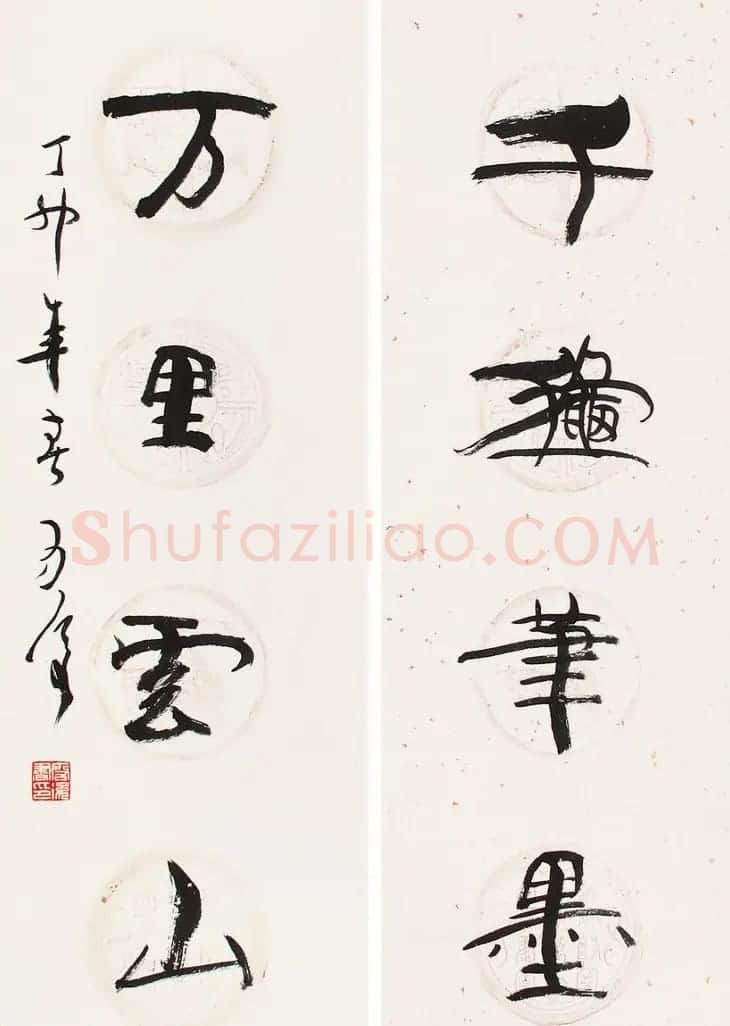 千龝筆墨
万里雲山
丁卯年春
Shufaziliao.COM